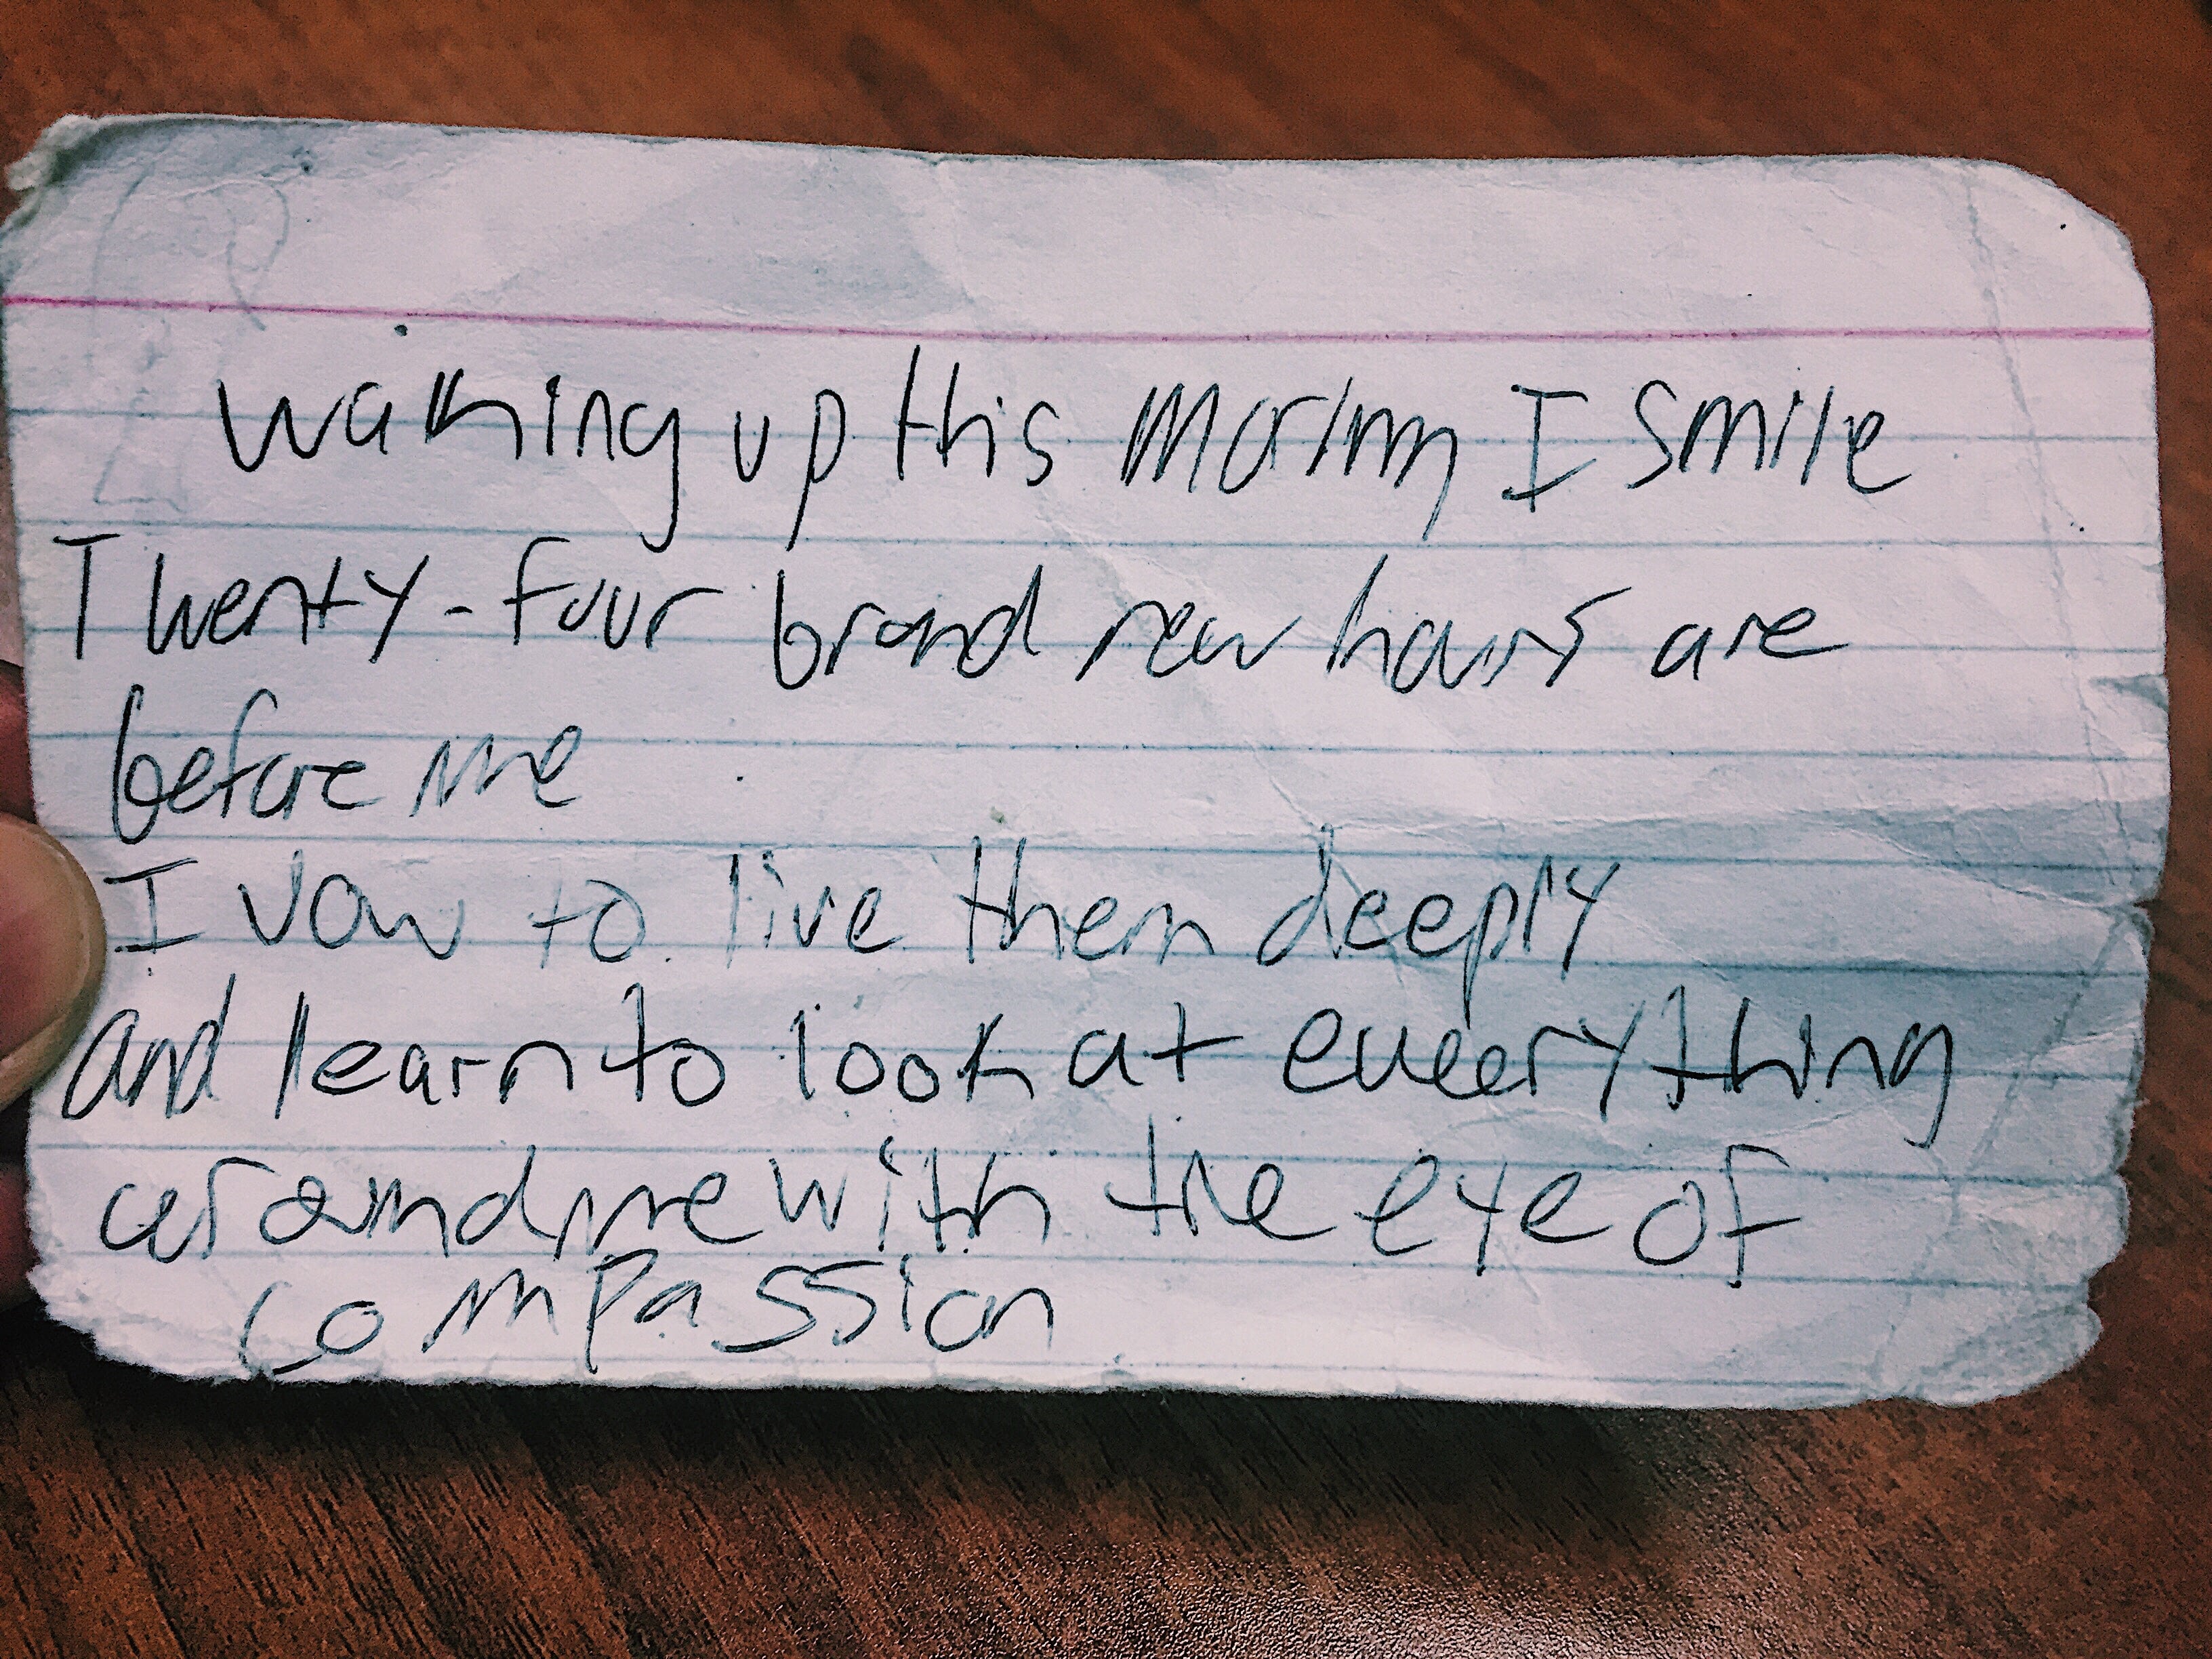 waking up this morinng I smile
Twenty-four brand new hours are
before me
I vow to live them deeply
and learn to look at eveerything
around me with the eye of
compassion